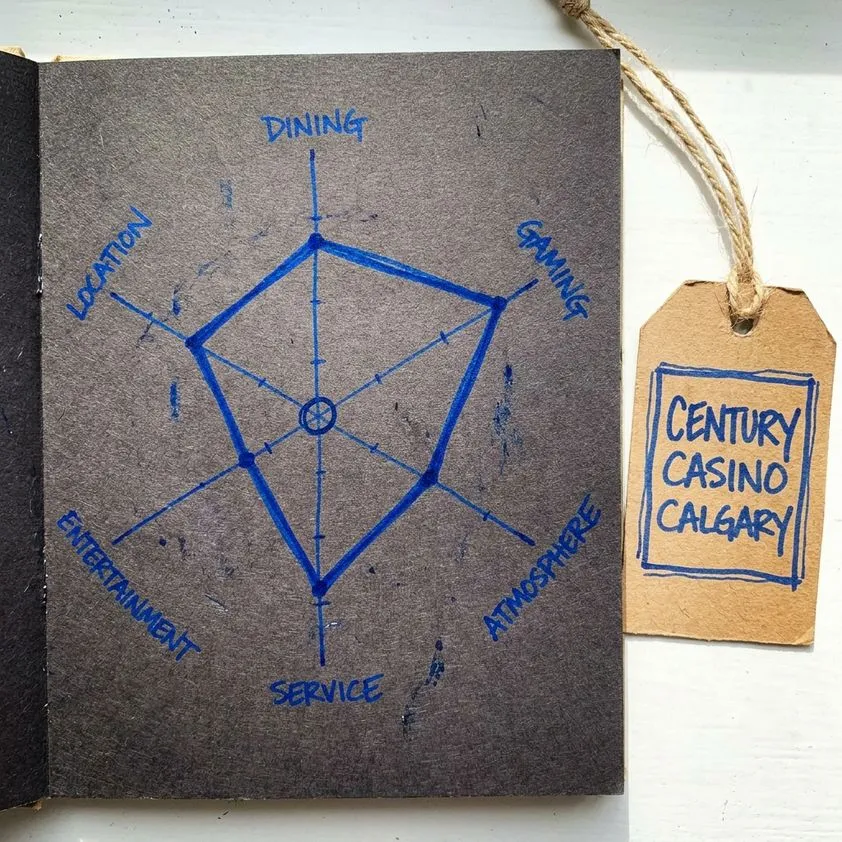 DINING
GAMING
LOCATION
ENTERTAINMENT
ATMOSPHERE
SERVICE
CENTURY
CASINO
CALGARY